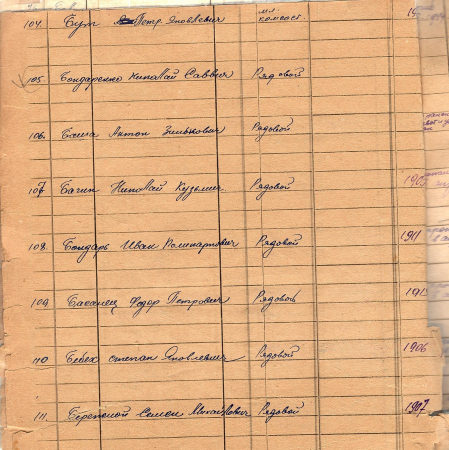 104. Бут Петр Яковлевич мл. комсост.
105. Бондаренко Николай Саввич Рядовой
106. Баша Антон Рядовой
107. Багин Николай Кузьмич Рядовой
108. Бондарь Иван Поликарпович Рядовой 1911
109. Басанец Федор Петрович Рядовой 1915
110 Бебех степан Яковлевич Рядовой 1906
111. Бережной Семен Михайлович Рядовой 1907